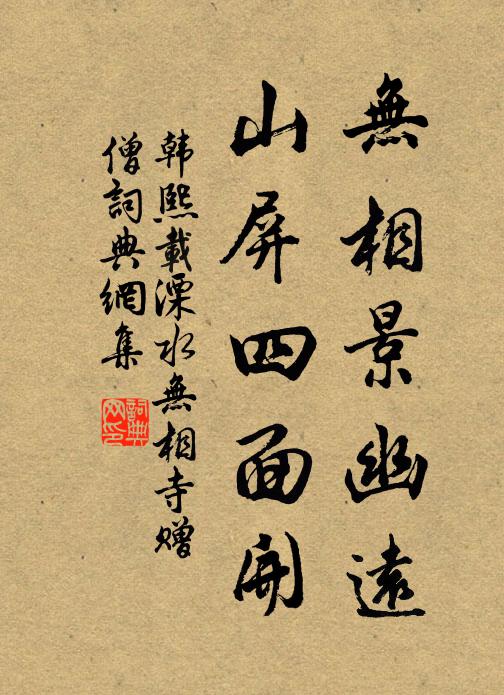 無相景幽遠
山屏四面開
韩熙載溧水無相寺赠
僧詞典網集
詞典
网印